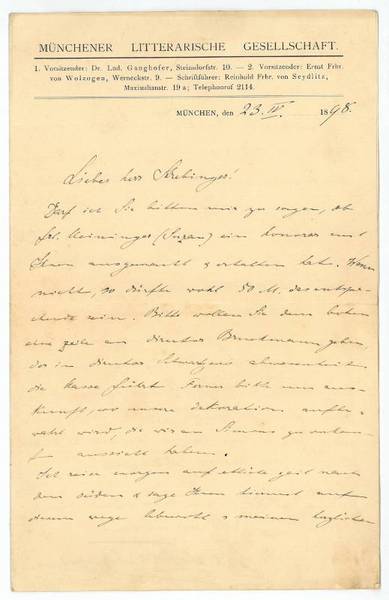 MÜNCHENER LITTERARISCHE GESELLSCHAFT.
1. Vorsitzender: Dr. Lud. Ganghofer, Steinsdorfstr. 10. — 2. Vorsitzender: Ernst Frhr.
von Wolzogen, Werneckstr. 9. — Schriftführer: Reinhold Frhr. von Seydlitz,
Maximilianstr. 19 a; Telephonruf 2114.
MÜNCHEN, den 23. IV. 1898.
Lieber Herr
Darf ich Sie bitten mir zu sagen, ob
Frl. Meininger (Suzan) ein honorar mit
ausgemacht & erhalten hat. Wenn
nicht, so dürfte wohl 50 M. das entspre-
chende sein. Bitte wollen Sie dem boten
eine zeile an direktor geben,
der in direktor abwesenheit
die kasse führt. Ferner bitte um aus-
kunft, wo unsere dekoration aufbe-
wahrt wird, die wir an zu
aussicht haben.
Ich reise morgen auf etliche zeit nach
dem süden & sage Ihnen auf
diesem wege lebewohl & meinen herzlichen